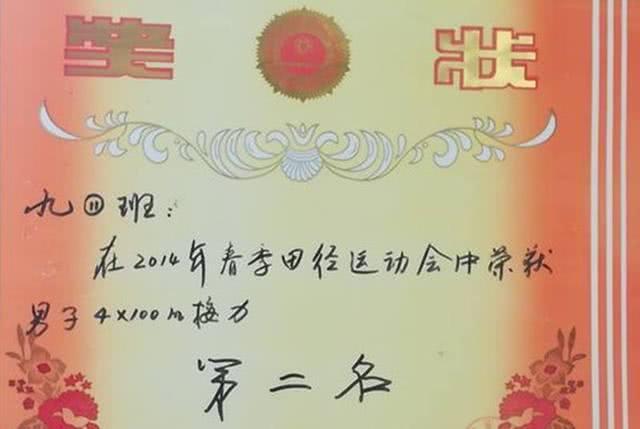 奖状
九⑪班：
在2014年春季田径运动会中荣获
男子4×100m接力
第二名